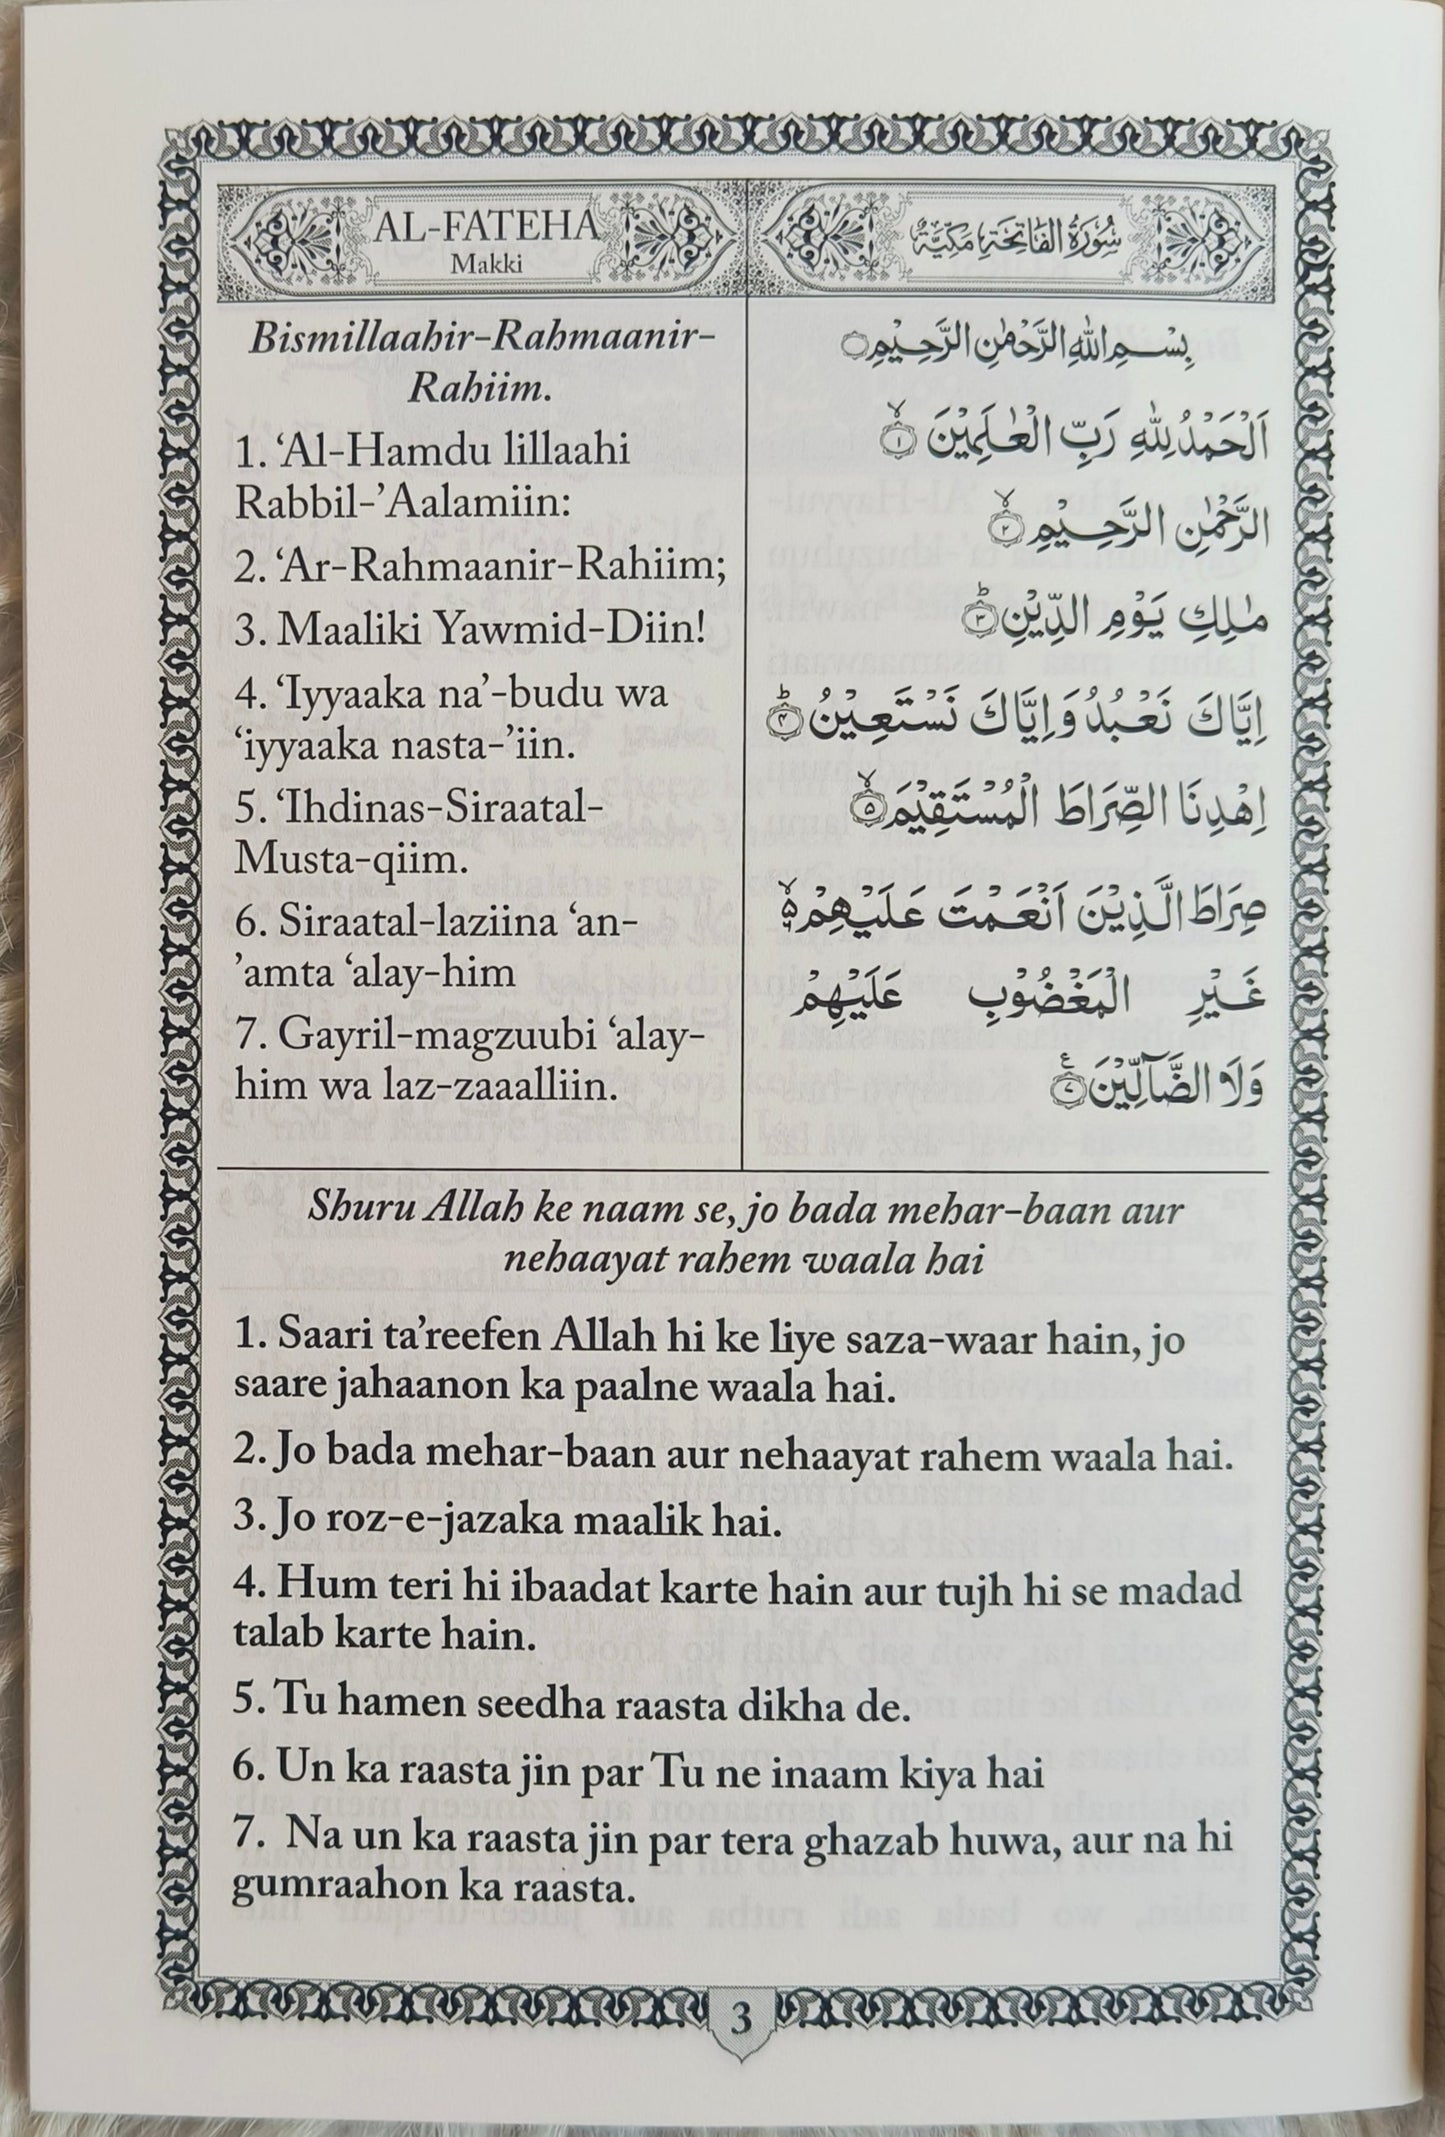 AL-FATEHA
Makki
سُوْرَةُ الْفَاتِحَةِ مَكِّيَّةٌ
Bismillaahir-Rahmaanir-
Rahiim.
1. ‘Al-Hamdu lillaahi
Rabbil-’Aalamiin:
2. ‘Ar-Rahmaanir-Rahiim;
3. Maaliki Yawmid-Diin!
4. ‘Iyyaaka na’-budu wa
‘iyyaaka nasta-’iin.
5. ‘Ihdinas-Siraatal-
Musta-qiim.
6. Siraatal-laziina ‘an-
’amta ‘alay-him
7. Gayril-magzuubi ‘alay-
him wa laz-zaaalliin.
بِسْمِ اللّٰهِ الرَّحْمٰنِ الرَّحِيْمِ۝
اَلْحَمْدُ لِلّٰهِ رَبِّ الْعٰلَمِيْنَۙ۝۱
الرَّحْمٰنِ الرَّحِيْمِۙ۝۲
مٰلِكِ يَوْمِ الدِّيْنِؕ۝۳
اِيَّاكَ نَعْبُدُ وَ اِيَّاكَ نَسْتَعِيْنُؕ۝۴
اِهْدِنَا الصِّرَاطَ الْمُسْتَقِيْمَۙ۝۵
صِرَاطَ الَّذِيْنَ اَنْعَمْتَ عَلَيْهِمْ۬ۙ
غَيْرِ الْمَغْضُوْبِ عَلَيْهِمْ
وَلَا الضَّآلِّيْنَ۝۷ع
Shuru Allah ke naam se, jo bada mehar-baan aur
nehaayat rahem waala hai
1. Saari ta’reefen Allah hi ke liye saza-waar hain, jo
saare jahaanon ka paalne waala hai.
2. Jo bada mehar-baan aur nehaayat rahem waala hai.
3. Jo roz-e-jazaka maalik hai.
4. Hum teri hi ibaadat karte hain aur tujh hi se madad
talab karte hain.
5. Tu hamen seedha raasta dikha de.
6. Un ka raasta jin par Tu ne inaam kiya hai
7. Na un ka raasta jin par tera ghazab huwa, aur na hi
gumraahon ka raasta.
3